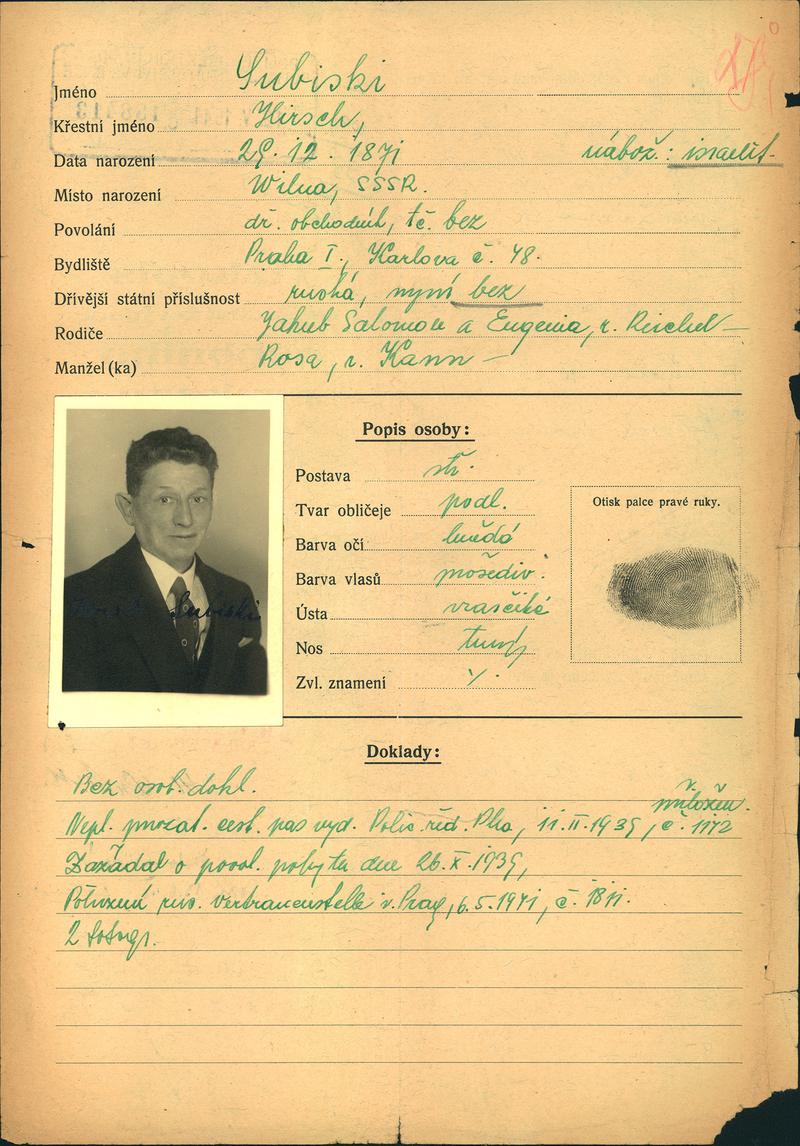 Jméno Subiski
Křestní jméno Hirsch,
Data narození 29. 12. 1871 nábož.: israelit.
Místo narození Wilna, SSSR.
Povolání obchodní, tč. bez
Bydliště Praha I., Karlova č. 48.
Dřívější státní příslušnost ruská, nyní bez
Rodiče Jakub Salomon a Eugenia, r. Reichel
Manžel (ka) Rosa, r. Kann
Popis osoby:
Postava stř.
Tvar obličeje podl.
Otisk palce pravé ruky.
Barva očí hnědá
Barva vlasů prošediv.
Ústa
Nos tupý
Zvl. znamení
Hirsch Subiski
Doklady:
Bez osob. dokl.
Nepl. cest. pas vyd. Polic. řed. Pha, 11.II.1939, č. 1172
Zažádal o povol. pobytu dne 26.X.1939,
Potvrzení rus. Vertrauensstelle v. Prag, 6.5.1941, č. 1811.
2 fotogr.